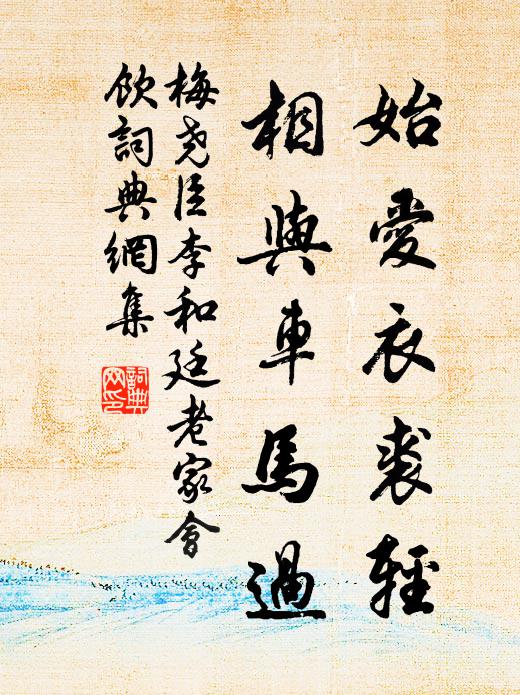 始愛衣裘輕
相與車馬過
梅尧臣李和廷老家會
飲詞典網集
詞典
网印